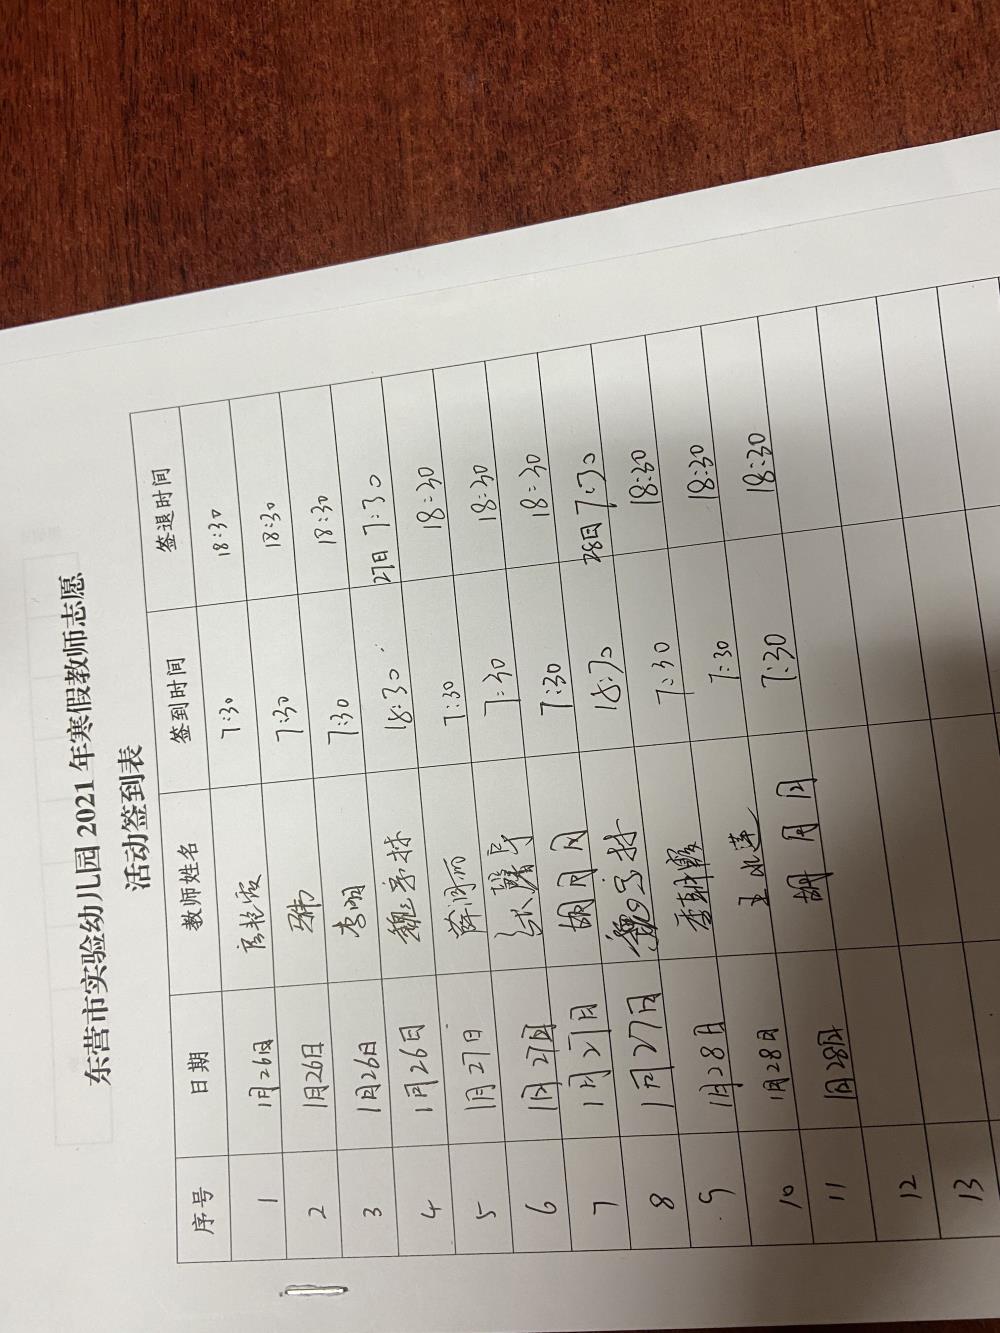 东营市实验幼儿园 2021 年寒假教师志愿
活动签到表
序号 日期 教师姓名 签到时间 签退时间
1 1月26日 7:30 18:30
2 1月26日 7:30 18:30
3 1月26日 李明 7:30 18:30
4 1月26日 18:30 27日 7:30
5 1月27日 7:30 18:30
6 1月27日 7:30 18:30
7 1月27日 胡月月 7:30 18:30
8 1月27日 18:30 28日 7:30
9 1月28日 李朝霞 7:30 18:30
10 1月28日 王冰莲 7:30 18:30
11 1月28日 胡月月 7:30 18:30
12
13